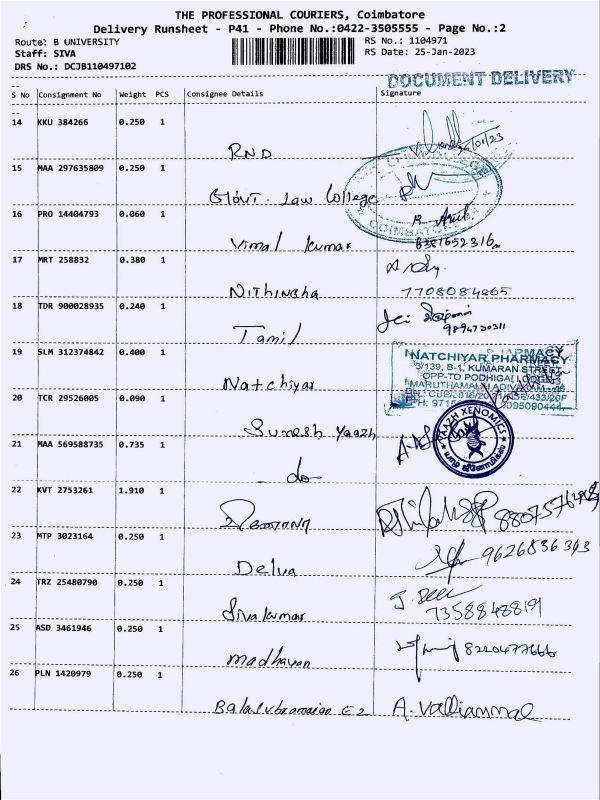 THE PROFESSIONAL COURIERS, Coimbatore
Delivery Runsheet - P41 - Phone No.:0422-3505555 - Page No.:2
Route: B UNIVERSITY
RS No.: 1104971
Staff: SIVA
RS Date: 25-Jan-2023
DRS No.: DCJB110497102
DOCUMENT DELIVERY
S No Consignment No Weight PCS Consignee Details Signature
14 KKU 384266 0.250 1
RND
15 MAA 297635809 0.250 1
Govt. Law College
COIMBATORE
16 PRO 14404793 0.060 1
Vimal Kumar
17 MRT 258832 0.380 1
Nithinsha
18 TDR 900028935 0.240 1
Tamil
9894730311
19 SLM 312374842 0.400 1
Natchiyar
NATCHIYAR PHARMACY
5/139, B-1, KUMARAN STREET
OPP-TO PODHIGAI LODGE
20 TCR 29526005 0.090 1
Suresh Yaazh
YAAZH XENOMICS
யாழ் ஜீனோமிக்ஸ்
21 MAA 569588735 0.735 1
- do -
22 KVT 2753261 1.910 1
23 MTP 3023164 0.250 1
Delva
9626836343
24 TRZ 25480790 0.250 1
Sivakumar
25 ASD 3461946 0.250 1
madhavan
8220477666
26 PLN 1420979 0.250 1
A. Valliammal